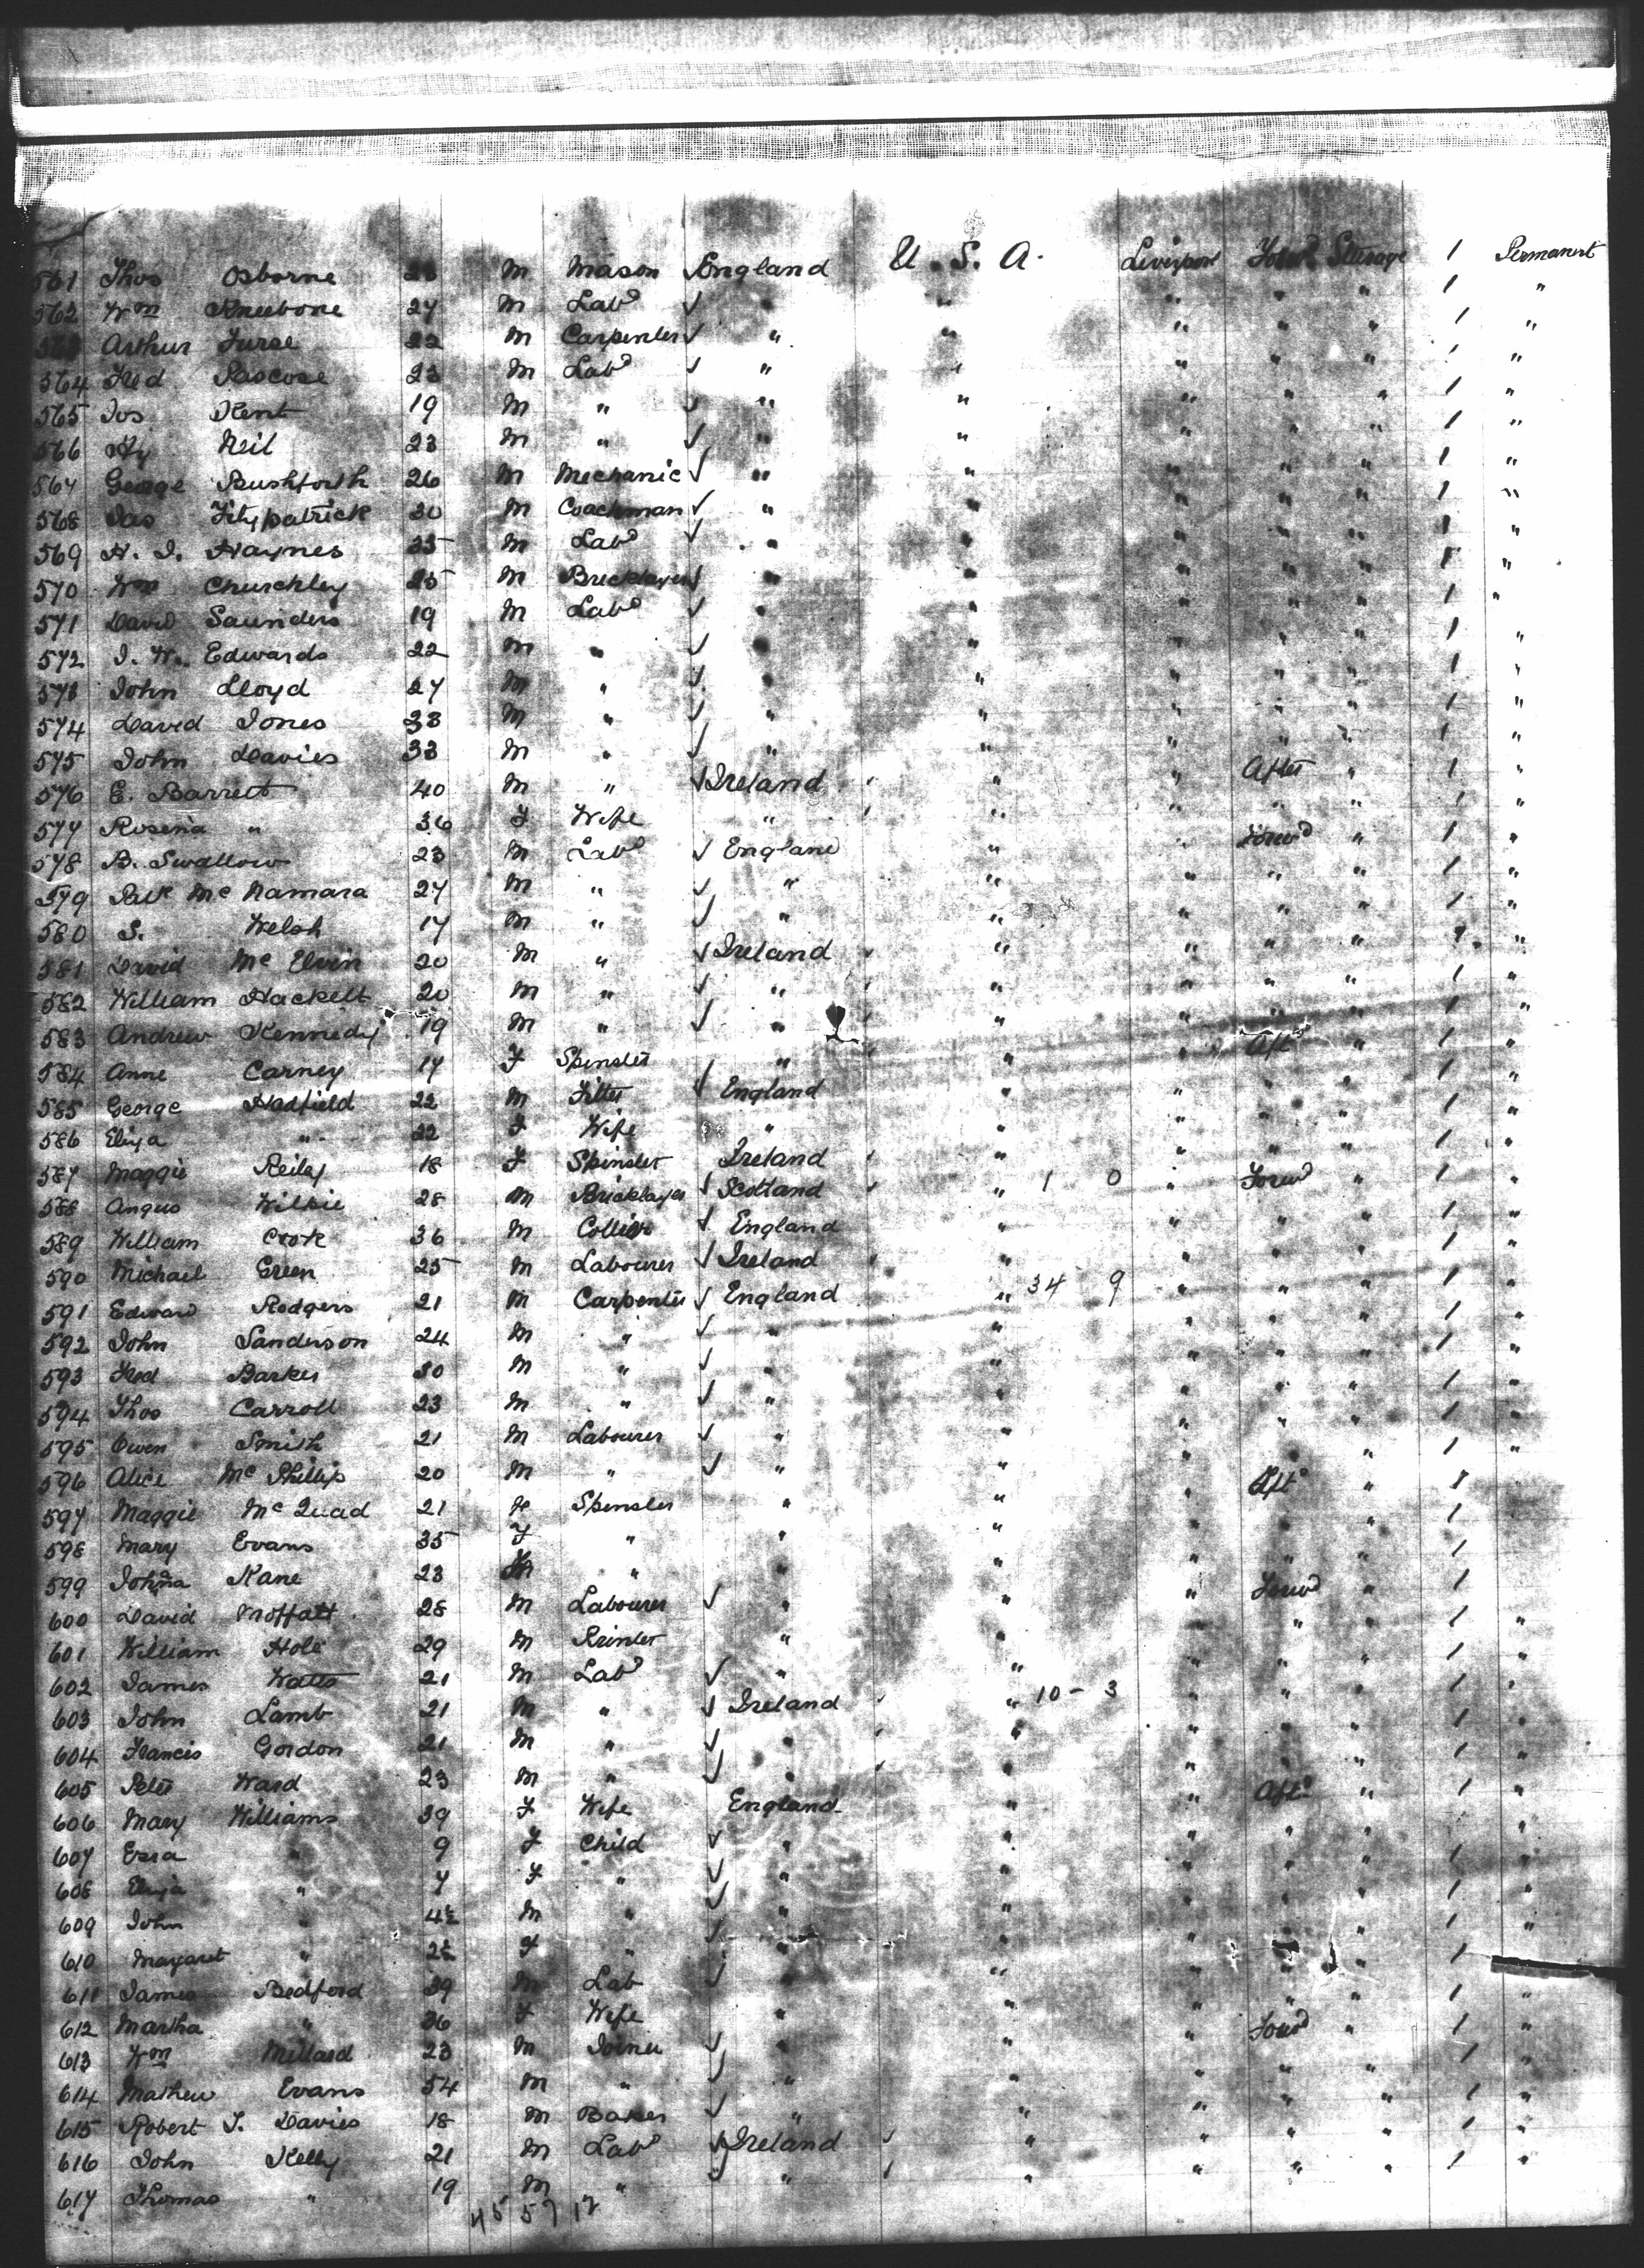 561 Thos Osborne M Mason England U. S. A. Liverpool Forwd Steerage 1 Permanent
562 Wm Kneebone 27 M Labr ✓ " " " " 1 "
Arthur Furse 22 M Carpenter ✓ " " " " " 1 "
564 Fred Pascoe 23 M Labr ✓ " " " " 1 "
565 Jos Kent 19 M " ✓ " " " " " 1 "
566 Hy Neil 23 M " ✓ " " " " " 1 "
567 George Rushforth 26 M Mechanic ✓ " " " " " 1 "
568 Jas Fitzpatrick 30 M Coachman ✓ " " " " " 1 "
569 H. J. Haynes 35 M Labr ✓ " " " " " 1 "
570 Wm Churchley 25 M Bricklayer ✓ " " " " " 1 "
571 David Saunders 19 M Labr ✓ " " " " " 1 "
572 J. W. Edwards 22 M " ✓ " " " " 1 "
573 John Lloyd 27 M " ✓ " " " " " 1 "
574 David Jones 33 M " ✓ " " " " " 1 "
575 John Davies 33 M " ✓ " " " " " 1 "
576 E. Barrett 40 M " ✓ Ireland " " After " 1 "
577 Rosena " 36 F Wife " " " " " 1 "
578 B. Swallow 23 M Labr ✓ England " " Forwd " 1 "
579 Patk McNamara 27 M " ✓ " " " " " 1 "
580 S. Welsh 17 M " ✓ " " " " " 1 "
581 David McElvin 20 M " ✓ Ireland " " " " 1 "
582 William Hackett 20 M " ✓ " " " " " 1 "
583 Andrew Kennedy 19 M " ✓ " " " " " 1 "
584 Anne Carney 17 F Spinster " " " Aft " 1 "
585 George Hadfield 22 M Fitter ✓ England " " " " 1 "
586 Eliza " 22 F Wife " " " " " 1 "
587 Maggie Reiley 18 F Spinster Ireland " " " " 1 "
588 Angus Wilkie 28 M Bricklayer ✓ Scotland " 1 0 " Forwd " 1 "
589 William Cook 36 M Collier ✓ England " " " " 1 "
590 Michael Green 25 M Labourer ✓ Ireland " " " " 1 "
591 Edward Rodgers 21 M Carpenter ✓ England " 34 9 " " " 1 "
592 John Sanderson 24 M " ✓ " " " " " 1 "
593 Fred Barker 30 M " ✓ " " " " " 1 "
594 Thos Carroll 23 M " ✓ " " " " " 1 "
595 Owen Smith 21 M Labourer ✓ " " " " " 1 "
596 Alice McPhillip 20 M " ✓ " " " Aft " 1
597 Maggie McQuad 21 F Spinster " " " " 1
598 Mary Evans 35 F " " " " " " 1
599 Johna Kane 23 " " " " Forwd " 1
600 David Moffatt 28 M Labourer ✓ " " " " " 1 "
601 William Hole 29 M Printer " " " " " 1 "
602 James Watts 21 M Labr ✓ " " " " " 1 "
603 John Lamb 21 M " ✓ Ireland " 10 - 3 " " " 1 "
604 Francis Gordon 21 M " ✓ " " " " " 1 "
605 Peter Ward 23 M " ✓ " " " " 1 "
606 Mary Williams 39 F Wife England " " Aft " 1 "
607 Esra " 9 F Child ✓ " " " " " 1 "
608 Eliza " 7 F " ✓ " " " " " 1 "
609 John " 4½ M " ✓ " " " " " 1 "
610 Margaret " F " ✓ " " " " 1
611 James Bedford 39 M Lab ✓ " " " " " 1 "
612 Martha " 36 F Wife " " " Forwd " 1 "
613 Wm Millard 23 M Joiner ✓ " " " " " 1 "
614 Mathew Evans 54 M " ✓ " " " " " 1 "
615 Robert J. Davies 18 M Baker ✓ " " " " " 1 "
616 John Kelly 21 M Labr ✓ Ireland " " " " 1 "
617 Thomas " 19 M " ✓ " " " " " 1 "
45 57 12